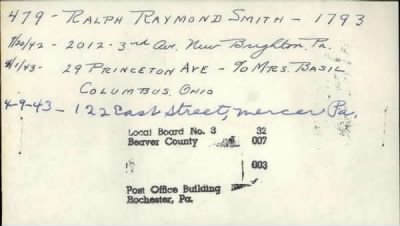 479 - RALPH RAYMOND SMITH - 1793
7/20/42 - 2012 - 3rd Av. New Brighton, Pa.
4/1/43 - 29 PRINCETON AVE - % MRS. BASIL
COLUMBUS, OHIO
4-9-43 - 122 East Street, Mercer Pa.
Local Board No. 3 32
Beaver County 007
003
Post Office Building
Rochester, Pa.